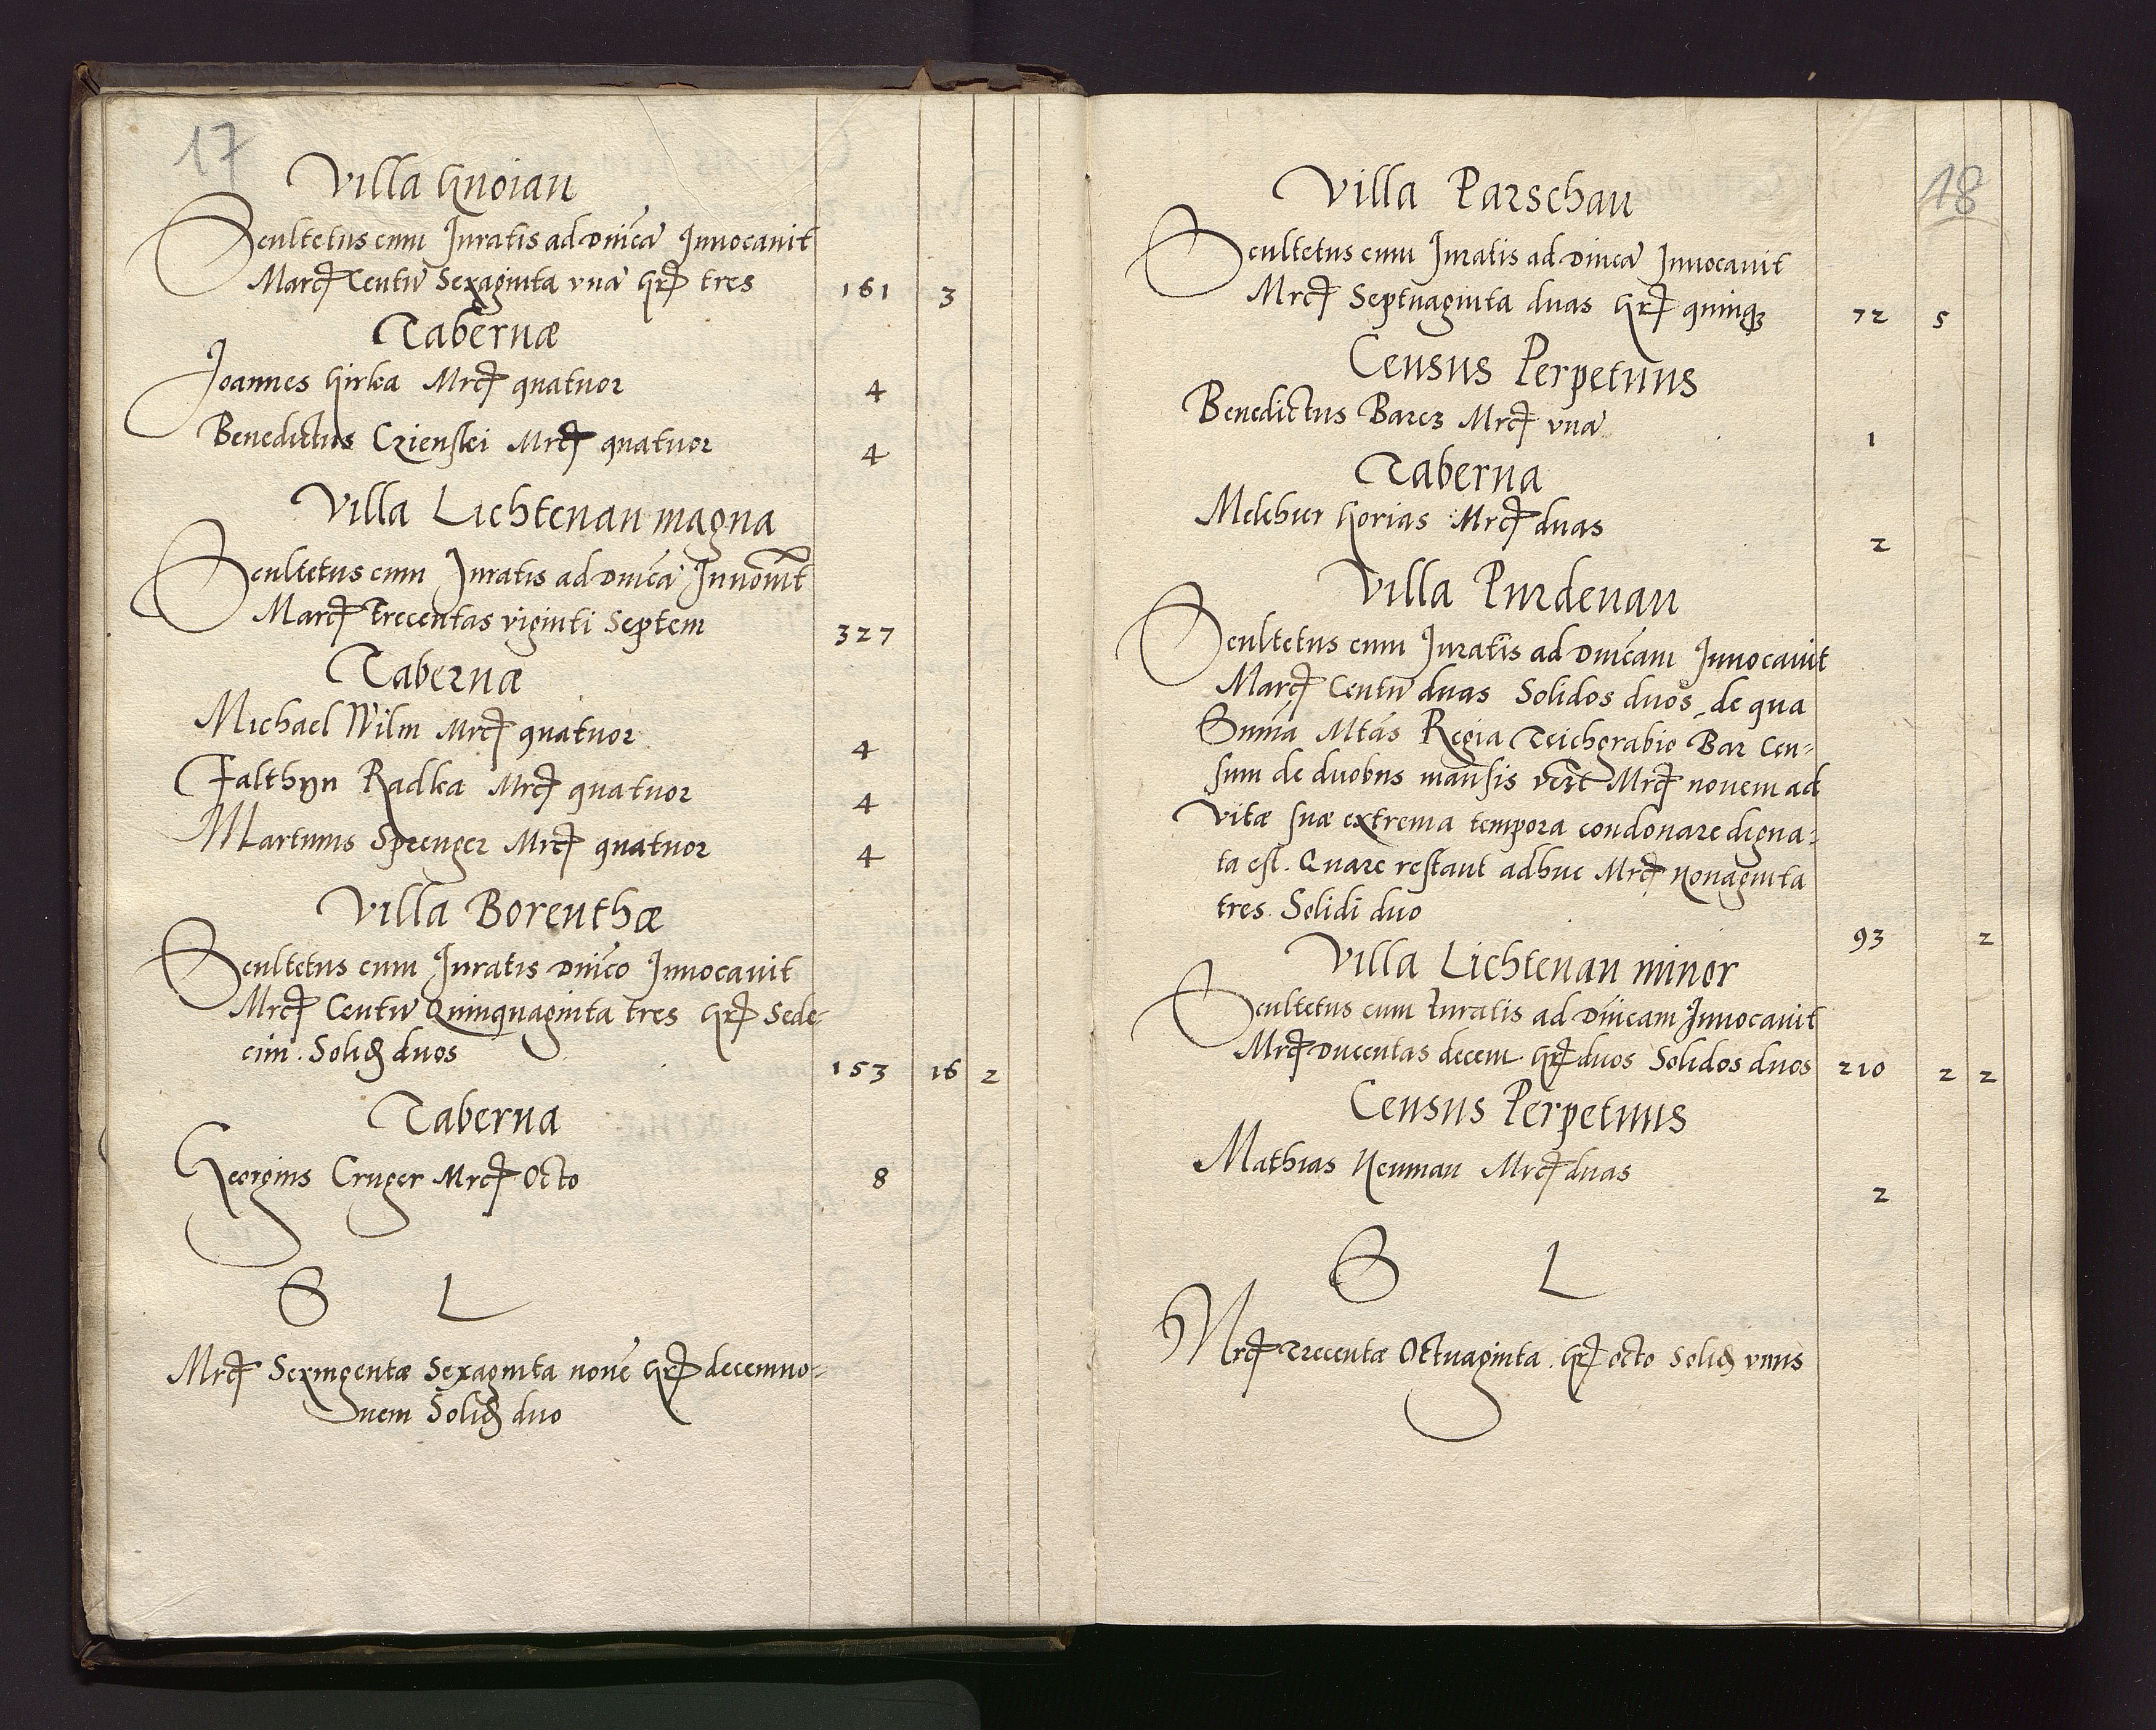 17
Villa Gnoian
Scultetus cum Juratis ad Dnicā Innocauit
Marc Centū Sexaginta vnā gr tres 161 3
Tabernæ
Joannes Girka Mrc quatuor 4
Benedictus Czienskei Mrc quatuor 4
Villa Lichtenau magna
Scultetus cum Juratis ad Dnicā
Marc Trecentas viginti Septem 327
Tabernæ
Michael Wilm Mrc quatuor 4
Falthyn Radka Mrc quatuor 4
Martinus Sprenger Mrc quatuor 4
Villa Borenthæ
Scultetus cum Juratis Dnico Innocauit
Mrc Centū Quinquaginta tres gr Sede-
cim. Solid duos 153 16 2
Taberna
Georgius Cruger Mrc Octo 8
S L
Mrc Sexingentæ Sexaginta nouē gr decemno-
uem Solid duo
18
Villa Parschau
Scultetus cum Juratis ad Dnicā Innocauit
Mrc Septuaginta duas gr quinqz 72 5
Census Perpetuus
Benedictus Barcz Mrc vnā 1
Taberna
Melchier Gorias Mrc duas 2
Villa Purdenau
Scultetus cum Juratis ad Dnicam Innocauit
Marc Centū duas Solidos duos, de qua
Summa Mtas Regia Teichgrabio Bar Cen-
sum de duobus mansis vert Mrc nouem ad
vitæ suæ extrema tempora condonare digna-
ta est. Quare restant adhuc Mrc Nonaginta
tres. Solidi duo 93 2
Villa Lichtenau minor
Scultetus cum Iuratis ad Dnicam Innocauit
Mrc Ducentas decem gr duos Solidos duos 210 2 2
Census Perpetuus
Mathias Neuman Mrc duas 2
S L
Mrc Trecentæ Octuaginta. gr octo Solid vnus